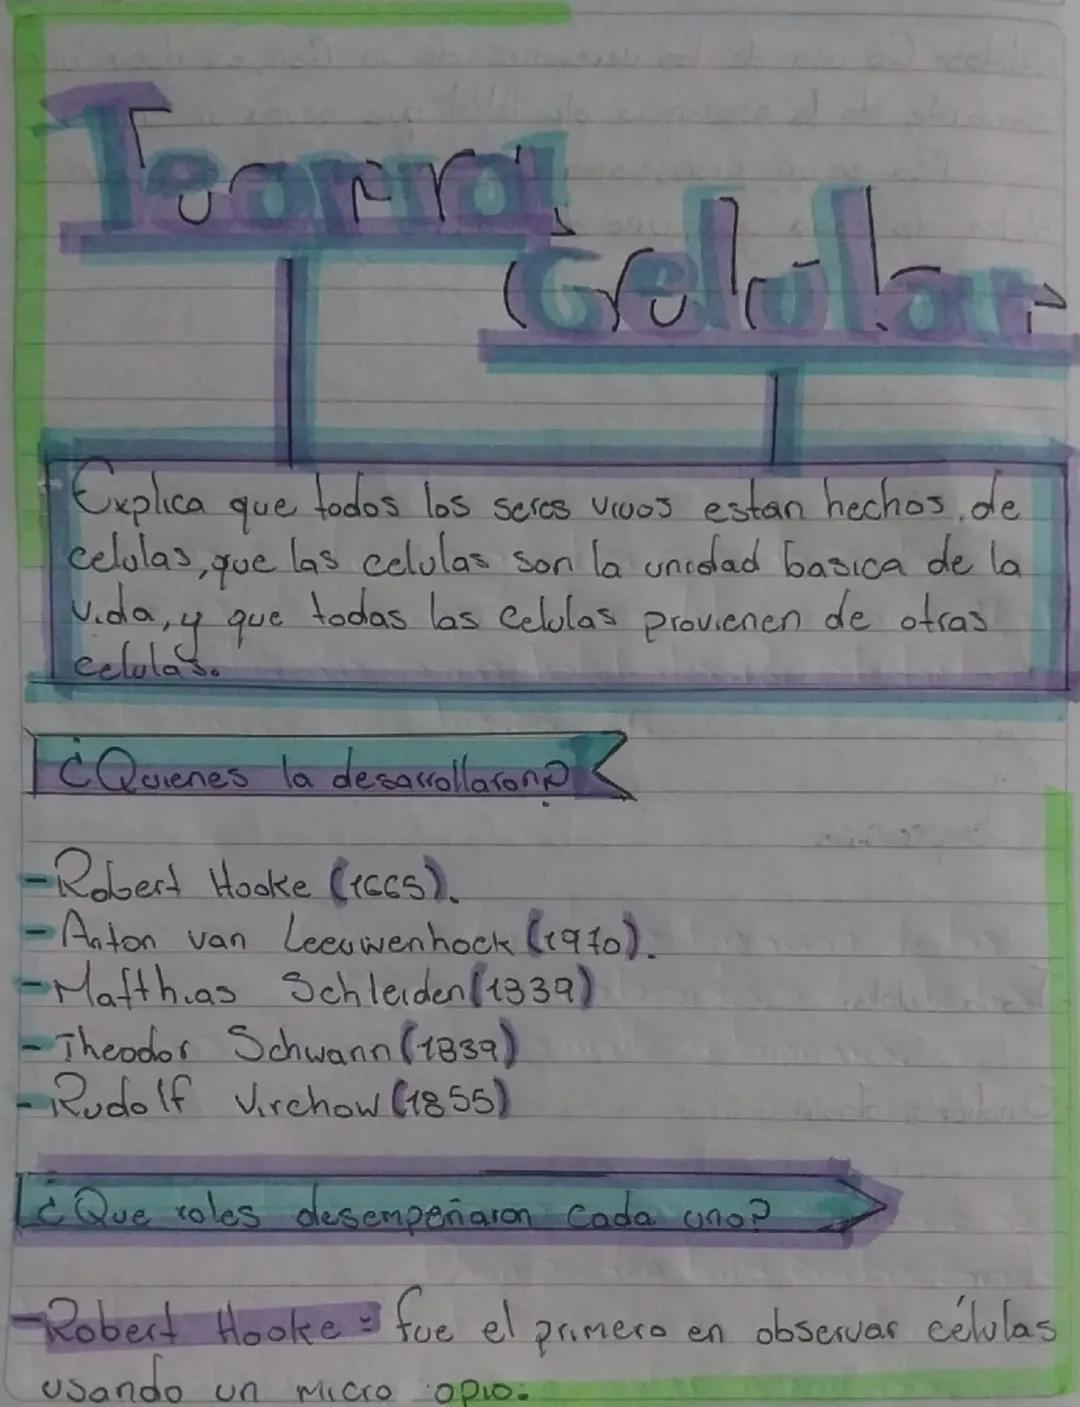 Teoria
Celular
Explica que todos los seres vivos estan hechos de
celulas, que las celulas son la unidad basica de la
vida, y que todas las celulas provienen de otras
celulas.
¿Quienes la desarrollaron?
-Robert Hooke (1665).
-Anton van Leeuwenhock (1970).
-Matthias Schleiden (1839)
-Theodor Schwann (1839)
-Rudolf Virchow (1855)
¿Que roles desempeñaron cada uno?
-Robert Hooke = fue el primero en observar células
usando un micro opio.